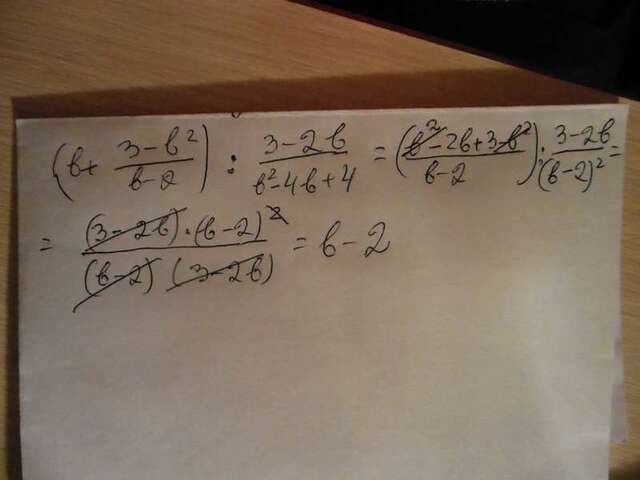 (b + \frac{3-b^2}{b-2}) : \frac{3-2b}{b^2-4b+4} = (\frac{b^2-2b+3-b^2}{b-2}) : \frac{3-2b}{(b-2)^2} =
= \frac{(3-2b)·(b-2)^2}{(b-2)(3-2b)} = b-2